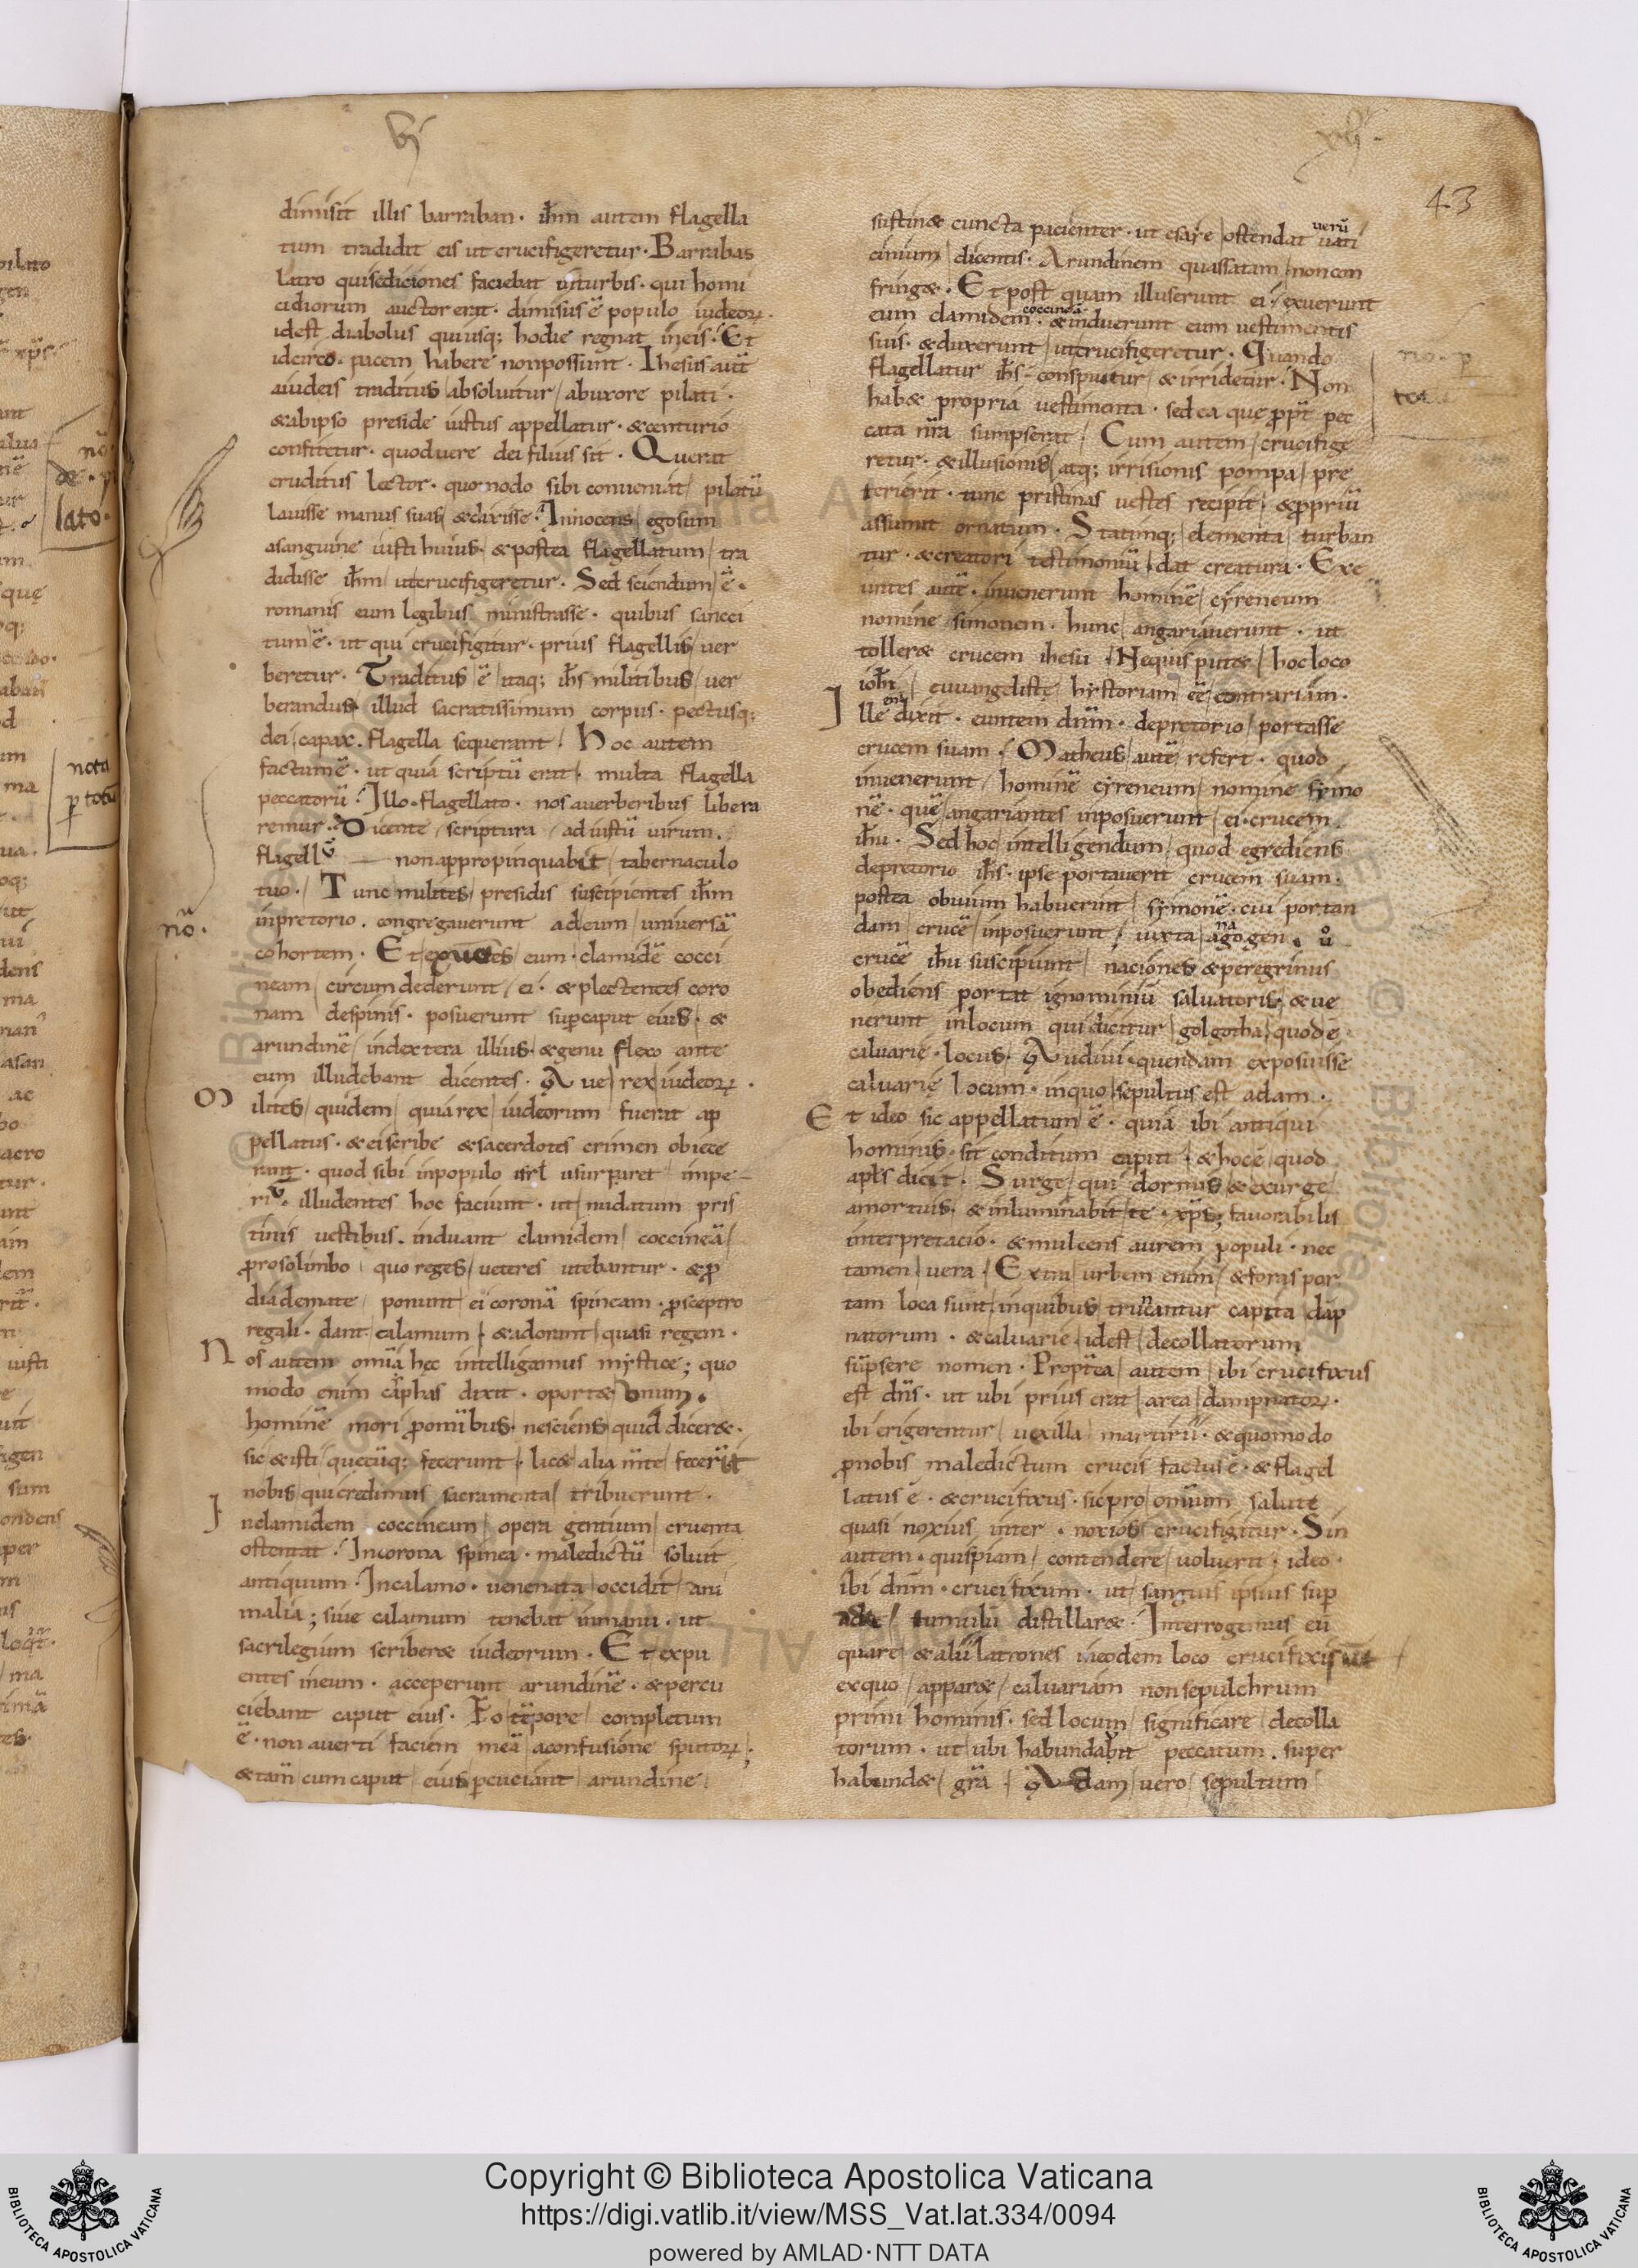 dimisit illis barraban · ih̄m autem flagella
tum tradidit eis ut crucifigeretur · Barrabas
latro qui sediciones faciebat in turbis · qui homi
cidiorum auctor erat · dimisus ē populo iudeoꝝ ·
idest diabolus qui usq; hodie regnat in eis · Et
idcirco · pacem habere non possunt · Ihesus aut̄
a iudeis traditus absoluitur ab uxore pilati ·
& ab ipso preside iustus appellatur · & centurio
confitetur · quod uere dei filius sit · Querat
eruditus lector · quomodo sibi conueniat pilatū
lauisse manus suas & dixisse · Innocens ego sum
a sanguine iusti huius · & postea flagellatum tra
didisse ih̄m ut crucifigeretur · Sed sciendum ē ·
romanis eum legibus ministrasse · quibus sanci
tum ē · ut qui crucifigitur · prius flagellis uer
beretur · Traditus ē itaq; ih̄s militibus uer
berandus illud sacratissimum corpus · pectusq;
dei capax · flagella sequerant · Hoc autem
factum ē · ut quia scriptū erat · multa flagella
peccatorū · Illo flagellato · nos a uerberibus libera
remur · Dicente scriptura ad iustū uirum ·
flagellū — non appropinquabit tabernaculo
tuo · Tunc milites presidis suscipientes ih̄m
in pretorio · congregauerunt ad eum uniuersā
cohortem · Et exuentes eum · clamidē cocci
neam circumdederunt ei · & plectentes coro
nam de spinis · posuerunt sup caput eius · &
arundinē in dextera illius · & genu flexo ante
eum illudebant dicentes · Aue rex iudeoꝝ ·
Milites quidem quia rex iudeorum fuerat ap
pellatus · & ei scribe & sacerdotes crimen obiece
runt · quod sibi in populo isrl̄ usurparet impe-
riū · illudentes hoc faciunt · ut nudatum pris
tinis uestibus · induant clamidem coccineā
pro solimbo quo reges ueteres utebantur · & ꝓ
diademate ponunt ei coronā spineam · ꝓ sceptro
regali · dant calamum · & adorant quasi regem ·
Nos autem omīa hęc intelligamus mystice; quo
modo enim caiphas dixit · oport& unum ·
hominē mori ꝓ omībus · nesciens quid dicer& ·
sic & isti quecūq; fecerunt · lic& alia mn̄te fecerīt
nobis qui credimus sacramenta tribuerunt ·
In clamidem coccineam opera gentium cruenta
ostentat · In corona spinea · maledictū soluit
antiquum · In calamo · uenenata occidit ani
malia; siue calamum tenebat in manu · ut
sacrilegium scriber& iudeorum · Et expu
entes in eum · acceperunt arundinē · & percu
ciebant caput eius · Eo tēpore completum
ē · non auerti faciem meā a confusione sputoꝝ ·;
& tam̄ cum caput eius ꝑcuciant arundine
sustin& cuncta pacienter · ut esaye ostendat uerū uati
cinium dicentis · Arundinem quassatam non con
fring& · Et post quam illuserunt ei · exuerunt
eum clamidem coccinea · & induerunt eum uestimentis
suis · & duxerunt ut crucifigeretur · Quando
flagellatur ih̄s · conspuitur & irridetur · Non
hab& propria uestimenta · sed ea que ꝓpt̄ pec
cata nr̄a sumpserat · Cum autem crucifige
retur · & illusionis atq; irrisionis pompa pre
terierit · tunc pristinas uestes recipit · & ꝓpriū
assumit ornatum · Statimq; elementa turban
tur · & creatori testimoniū dat creatura · Exe
untes autē · inuenerunt hominē cyreneum
nomine simonem · hunc angariauerunt · ut
toller& crucem ihesu · Nequis put& hoc loco
ioh̄i euuangelistę hystoriam eē contrariam ·
Ille enī dixit · euntem dn̄m · de pretorio portasse
crucem suam · Matheus autē refert · quod
inuenerunt hominē cyreneum nomine symo
nē · quē angariantes inposuerunt ei · crucem ·
ih̄u · Sed hoc intelligendum quod egrediens
de pretorio ih̄s · ipse portauerit crucem suam ·
postea obuium habuerint symonē · cui portan
dam crucē inposuerunt · iuxta anagogen · ů
crucē ih̄u suscipiunt naciones & peregrinus
obediens portat ignominiū saluatoris · & ue
nerunt in locum qui dicitur golgotha quod ē
caluarię · locus · Audiui quendam exposuisse
caluarię locum · in quo sepultus est adam ·
Et ideo sic appellatum ē · quia ibi antiqui
hominis · sit conditum caput · & hoc ē quod
apl̄s dicit · Surge qui dormis & exurge
a mortuis · & inluminabit te · xp̄s; fauorabilis
interpretacio · & mulcens aurem populi · nec
tamen uera · Extra urbem enim & foris por
tam loca sunt in quibus truncantur capita dāp
natorum · & caluarie idest decollatorum
sūpsere nomen · Propt̄ea autem ibi crucifixus
est dn̄s · ut ubi prius erat area dampnatoꝝ ·
ibi erigerentur uexilla martirū · & quomodo
ꝓ nobis maledictum crucis factus ē · & flagel
latus ē · & crucifixus · sic pro omīum salute
quasi noxius inter · noxios crucifigitur · Sin
autem · quispiam contendere uoluerit · ideo ·
ibi dn̄m · crucifixum · ut sanguis ipsius sup
ade tumulū distillar& · Interrogemus eū
quare & alii latrones in eodem loco crucifixi sūt
ex quo appar& caluariam non sepulchrum
primi hominis · sed locum significare decolla
torum · ut ubi habundabit peccatum · super
habund& gr̄a · Adam uero sepultum
43
nō ·
nō
de · p
lato ·
nota
ꝑ totū
no · p
Copyright © Biblioteca Apostolica Vaticana
https://digi.vatlib.it/view/MSS_Vat.lat.334/0094
powered by AMLAD·NTT DATA
BIBLIOTECA APOSTOLICA VATICANA
BIBLIOTECA APOSTOLICA VATICANA